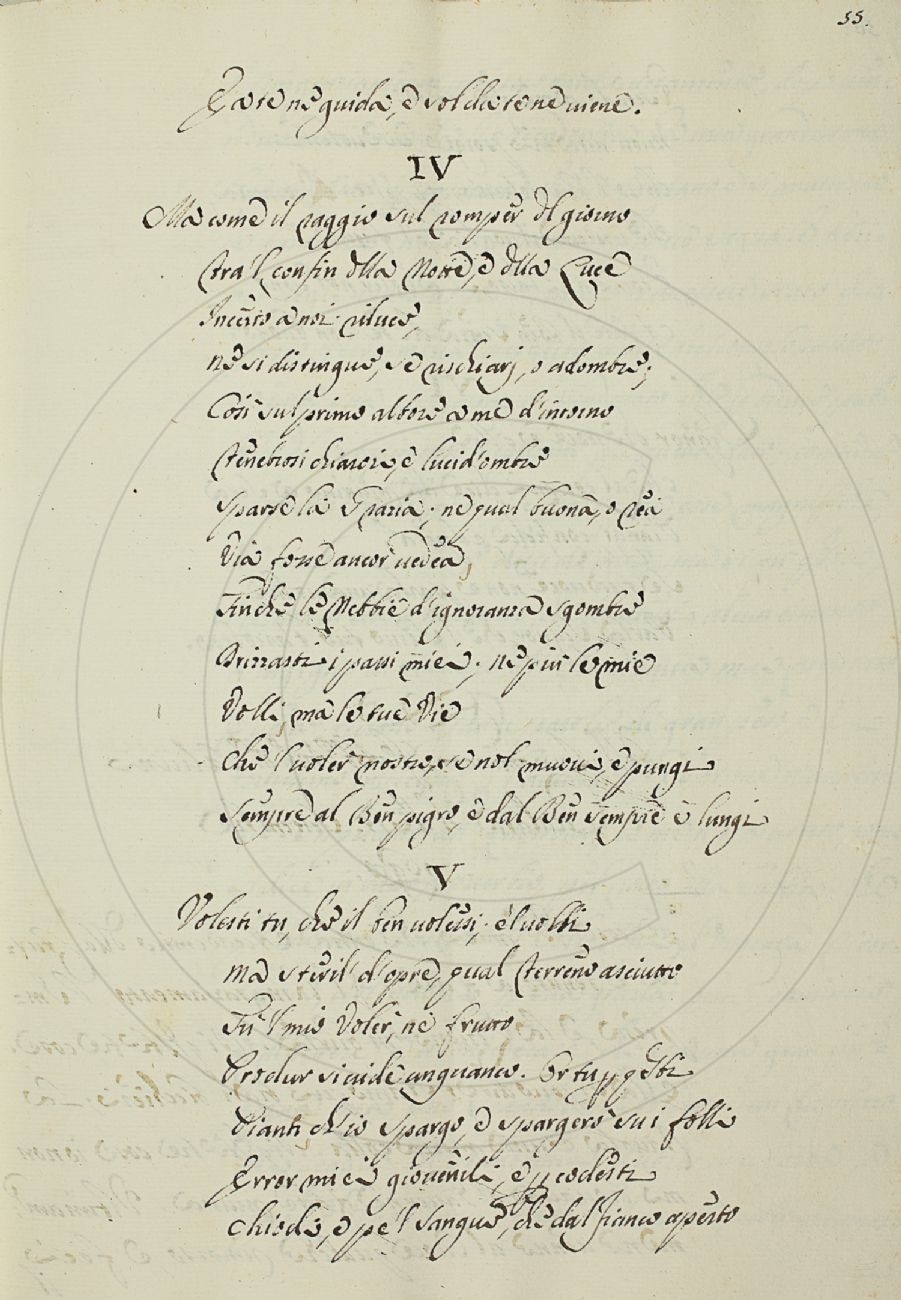 55.
E a te ne guida, e sol da te ne viene.
IV
Ma come il raggio sul romper del giorno
tra'l confin della Notte, e della Luce
Incerto a noi riluce,
ne si distingue, se rischiarj, o adombre;
Così sul primo albore a me d'intorno
tenebrosi chiarori, e lucid'ombre
sparse la Grazia; ne qual buona, o rea
Via fosse ancor vedea,
Finche le Nebbie d'ignoranza sgombre
Drizzasti i passi miei; ne più le mie
Volli, ma le tue Vie
che'l voler nostro, se nol muovi, e pungi
sempre al Ben pigro, e dal Ben sempre è lungi
V
Volesti tu, che il ben volessi; e'l volli
ma steril d'opre, qual terreno asciutto
Fu'l mio Voler, ne frutto
Produr si vide unquanco. Or tu pp questi
Pianti ch'io spargo, e spargerò su i folli
Error miei giovenili, e pp codesti
Chiodi, e pe'l Sangue, che dal fianco aperto